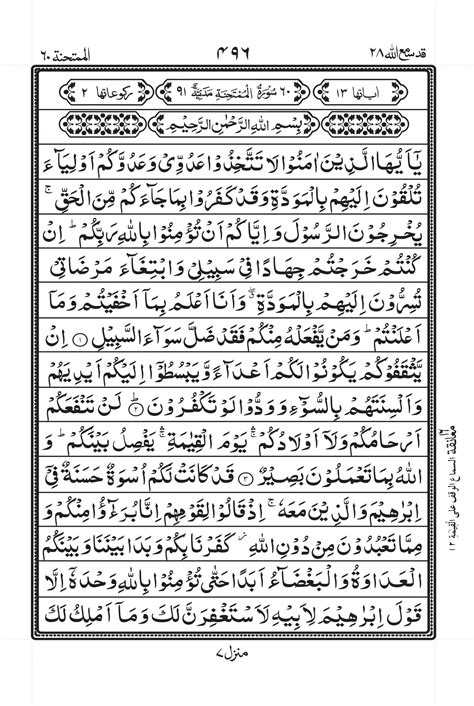 قد سمع الله ٢٨ ۴۹۶ الممتحنة ٦٠
اٰیاتها ١٣ ٦٠ سُوْرَةُ الْمُمْتَحِنَةِ مَدَنِيَّةٌ ٩١ رکوعاتها ٢
بِسْمِ اللهِ الرَّحْمٰنِ الرَّحِيْمِ
يٰۤاَيُّهَا الَّذِيْنَ اٰمَنُوْا لَا تَتَّخِذُوْا عَدُوِّيْ وَعَدُوَّكُمْ اَوْلِيَآءَ
تُلْقُوْنَ اِلَيْهِمْ بِالْمَوَدَّةِ وَقَدْ كَفَرُوْا بِمَا جَآءَكُمْ مِّنَ الْحَقِّ ۚ
يُخْرِجُوْنَ الرَّسُوْلَ وَاِيَّاكُمْ اَنْ تُؤْمِنُوْا بِاللهِ رَبِّكُمْ ؕ اِنْ
كُنْتُمْ خَرَجْتُمْ جِهَادًا فِيْ سَبِيْلِيْ وَابْتِغَآءَ مَرْضَاتِيْ
تُسِرُّوْنَ اِلَيْهِمْ بِالْمَوَدَّةِ ۖ وَاَنَا اَعْلَمُ بِمَاۤ اَخْفَيْتُمْ وَمَاۤ
اَعْلَنْتُمْ ؕ وَمَنْ يَّفْعَلْهُ مِنْكُمْ فَقَدْ ضَلَّ سَوَآءَ السَّبِيْلِ ۝١ اِنْ
يَّثْقَفُوْكُمْ يَكُوْنُوْا لَكُمْ اَعْدَآءً وَّيَبْسُطُوْۤا اِلَيْكُمْ اَيْدِيَهُمْ
وَاَلْسِنَتَهُمْ بِالسُّوْٓءِ وَوَدُّوْا لَوْ تَكْفُرُوْنَ ۝٢ لَنْ تَنْفَعَكُمْ
اَرْحَامُكُمْ وَلَاۤ اَوْلَادُكُمْ ۛۚ يَوْمَ الْقِيٰمَةِ ۛۚ يَفْصِلُ بَيْنَكُمْ ؕ وَ
اللهُ بِمَا تَعْمَلُوْنَ بَصِيْرٌ ۝٣ قَدْ كَانَتْ لَكُمْ اُسْوَةٌ حَسَنَةٌ فِيْۤ
اِبْرٰهِيْمَ وَالَّذِيْنَ مَعَهٗ ۚ اِذْ قَالُوْا لِقَوْمِهِمْ اِنَّا بُرَءٰٓؤُا مِنْكُمْ وَ
مِمَّا تَعْبُدُوْنَ مِنْ دُوْنِ اللهِ ؗ كَفَرْنَا بِكُمْ وَبَدَا بَيْنَنَا وَبَيْنَكُمُ
الْعَدَاوَةُ وَالْبَغْضَآءُ اَبَدًا حَتّٰى تُؤْمِنُوْا بِاللهِ وَحْدَهٗۤ اِلَّا
قَوْلَ اِبْرٰهِيْمَ لِاَبِيْهِ لَاَسْتَغْفِرَنَّ لَكَ وَمَاۤ اَمْلِكُ لَكَ
معانقة
السماع الوقف على القيمة ١٢
منزل ٧